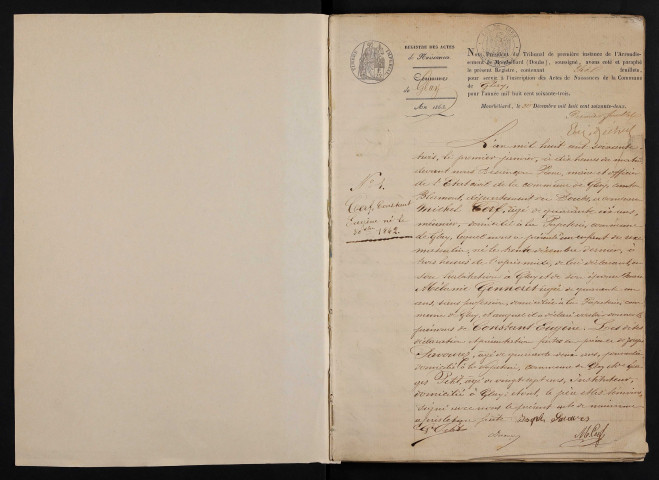 REGISTRE DES ACTES
de Naissances
Commune
de Glay
An 1863
Nous Président du Tribunal de première instance de l'Arrondis-
sement de Montbéliard (Doubs), soussigné, avons coté et paraphé
le présent Registre, contenant feuillets,
pour servir à l'inscription des Actes de Naissances de la Commune
de Glay,
pour l'année mil huit cent soixante-trois.
Montbéliard, le Décembre mil huit cent soixante-deux.
Premier feuillet
L'an mil huit cent soixante
trois, le premier janvier, à dix heures du matin
devant nous maire et officier
de l'Etat civil de la commune de Glay, canton
Blamont, département du Doubs, est comparu
Michel Cerf, âgé de quarante ans,
meunier, domicilié à la Papeterie, commune
de Glay, lequel nous a présenté un enfant du sexe
masculin, né le trente décembre dernier, à
trois heures de l'après-midi, de lui déclarant, en
son habitation à Glay et de son épouse
Mélanie Gonnoret âgée de quarante
ans, sans profession, domiciliée à la Papeterie, com
mune de Glay, et auquel il a déclaré vouloir donner les
prénoms de Constant Eugène. Lesdites
déclaration et présentation faites en présence de Joseph
âgé de quarante ans,
domicilié à la Papeterie, commune de Glay et de
Petit, âgé de vingt sept ans, instituteur,
domicilié à Glay; dont, le père et les témoins,
signé avec nous le présent acte de naissance
après lecture faite
N° 1.
Cerf, Constant
Eugène né le
30 Xbre 1862.
Joseph